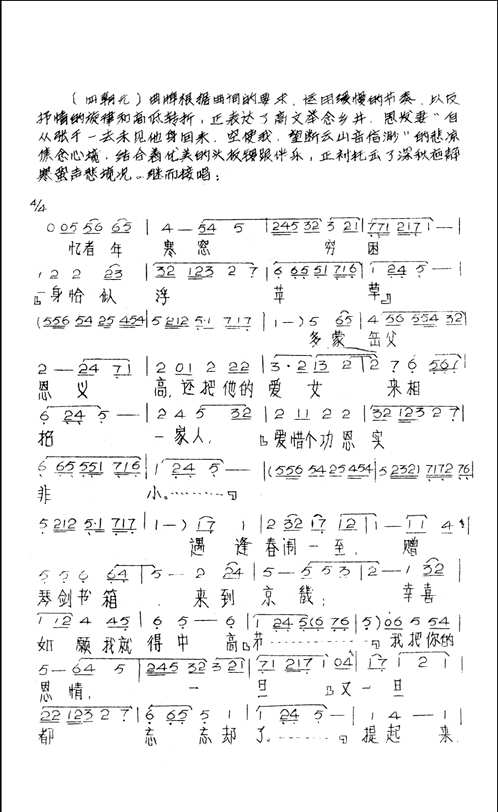 (四朝元)曲牌根据曲词的要求,运用缓慢的节奏,以反
抒情的旋律和高低转折,正表达了高文举念乡井、思发妻"自
从张千一去未见他身回来,空使我,望断云山音信渺"的悲凉
焦急心境,结合着优美的头板腰跟伴乐,正衬托出了深秋夜静
寒蛩声悲境况。继而接唱:
4/4
0 05 56 65 | 4 — 54 5 | 245 32 3 21 | 771 217 1 — |
忆昔年 寒窓 穷困
1 2 2 23 | 32 123 2 7 | 6 65 51 716 | 1 24 5 — |
一身恰似 浮 草
(556 54 25 454 | 5 212 5·1 717 | 1 —) 5 65 | 4 56 554 32 |
多蒙岳父
2 — 24 71 | 2 01 2 22 | 3·213 2 | 2 7 6 561 |
恩义 高,还把他的爱女 来相
6 24 5 — | 2 4 5 32 | 2 11 2 2 | 32 123 2 7 |
招 一家人, 爱惜个功恩实
6 65 551 716 | 1 24 5 — | (556 54 25 454 | 5 2321 7172 76 |
非 小。
5 212 5·1 717 | 1 —) 17 1 | 2 32 17 12 | 1 — 11 4 |
遇逢春闱一至, 赠
5 5 6 64 | 5 — 2 24 | 5 — 5 5 3 | 2 — 1 32 |
琴剑书箱, 来到京 ; 幸喜
1 12 4 45 | 6 5 — 6 | 1 24 5 (6 76 | 5) 06 5 54 |
如愿我就得中高 我把你的
5 — 64 5 | 245 32 3 21 | 71 217 1 04 | 17 1 2 1 |
恩情, 一旦 又一旦
22 123 2 7 | 6 65 5 1 | 1 24 5 — | 1 4 — 1 |
都 忘忘却了。 提起来